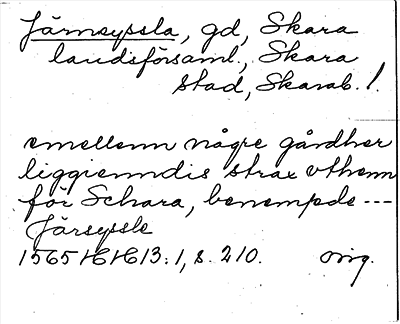 Järnsyssla, gd, Skara
landsförsaml., Skara
stad, Skarab. l.
emellenn någre gårdher
liggienndis strax vthenn
för Schara, benempde ---
Järsyssle
1565 HH 13:1, s. 210. orig.